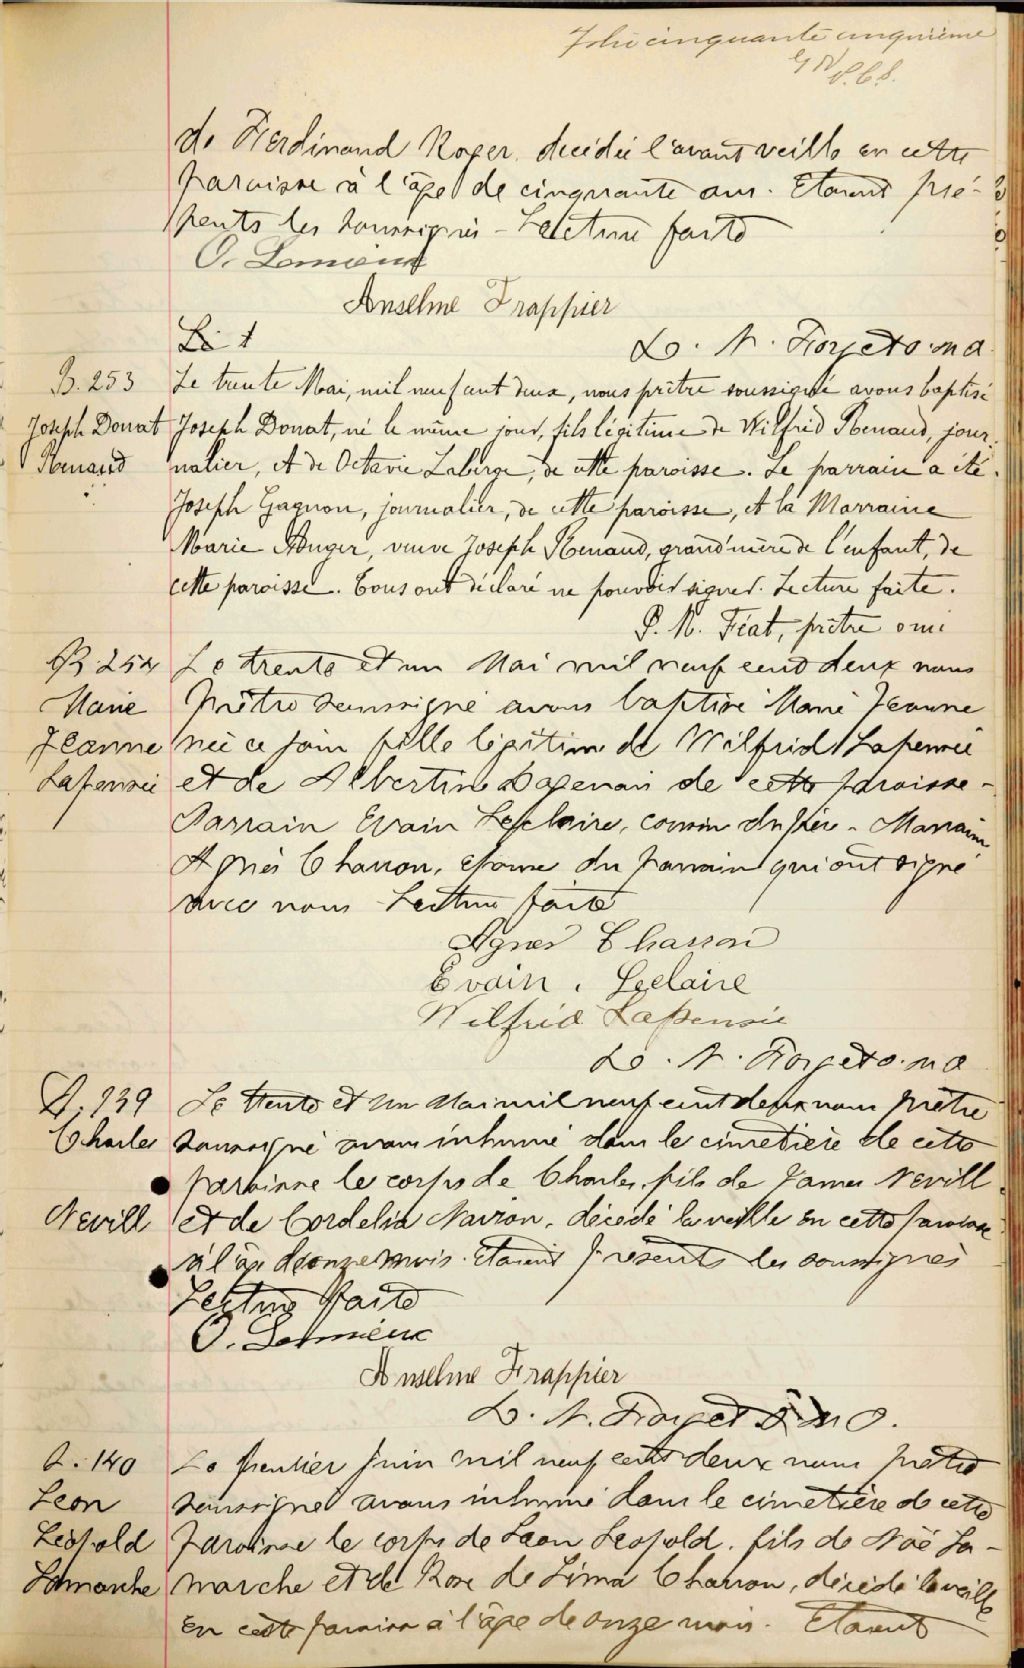 Folio cinquante cinquième
de Ferdinand Roger decédée l'avant veille en cette
paroisse à l'âge de cinquante ans. Etaient pré-
sents les soussignés - Lecture faite
O. Lemieux
Anselme Frappier
L. N. Forget o.m.i
B. 253
Joseph Donat
Renaud
Le trente Mai, mil neuf cent deux, nous prêtre soussigné avons baptisé
Joseph Donat, né le même jour, fils légitime de Wilfrid Renaud, jour-
nalier, et de Octavie Laberge, de cette paroisse. Le parrain a été
Joseph Gagnon, journalier, de cette paroisse, et la Marraine
Marie Auger, veuve Joseph Renaud, grand'mère de l'enfant, de
cette paroisse. Tous ont déclaré ne pouvoir signer. Lecture faite.
P. M. Féat, prêtre omi
B 254
Marie
Jeanne
Lapensée
Le trente et un Mai mil neuf cent deux nous
prêtre soussigné avons baptisé Marie Jeanne
née ce jour fille légitime de Wilfrid Lapensée
et de Albertine Dagenais de cette paroisse -
Parrain Evain Leclaire, cousin du père - Marraine
Agnès Charron, épouse du parrain qui ont signé
avec nous - Lecture faite
Agnes Charron
Evain. Leclaire
Wilfrid Lapensée
L. N. Forget o.m.i
S. 139
Charles
Nevill
Le trente et un Mai mil neuf cent deux nous prêtre
soussigné avons inhumé dans le cimetière de cette
paroisse le corps de Charles, fils de James Nevill
et de Cordelia Navion, décédé la veille en cette paroisse
à l'âge de onze mois. Etaient présents les soussignés
Lecture faite
O. Lemieux
Anselme Frappier
L. N. Forget o.m.i.
S. 140
Leon
Léopold
Lamarche
Le premier Juin mil neuf cent deux nous prêtre
soussigné avons inhumé dans le cimetière de cette
paroisse le corps de Leon Leopold. fils de Noë La-
marche et de Rose de Lima Charron, décédé la veille
en cette paroisse à l'âge de onze mois. Etaient